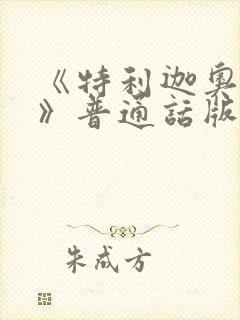 《特利迦奥
》普通話版
朱成方